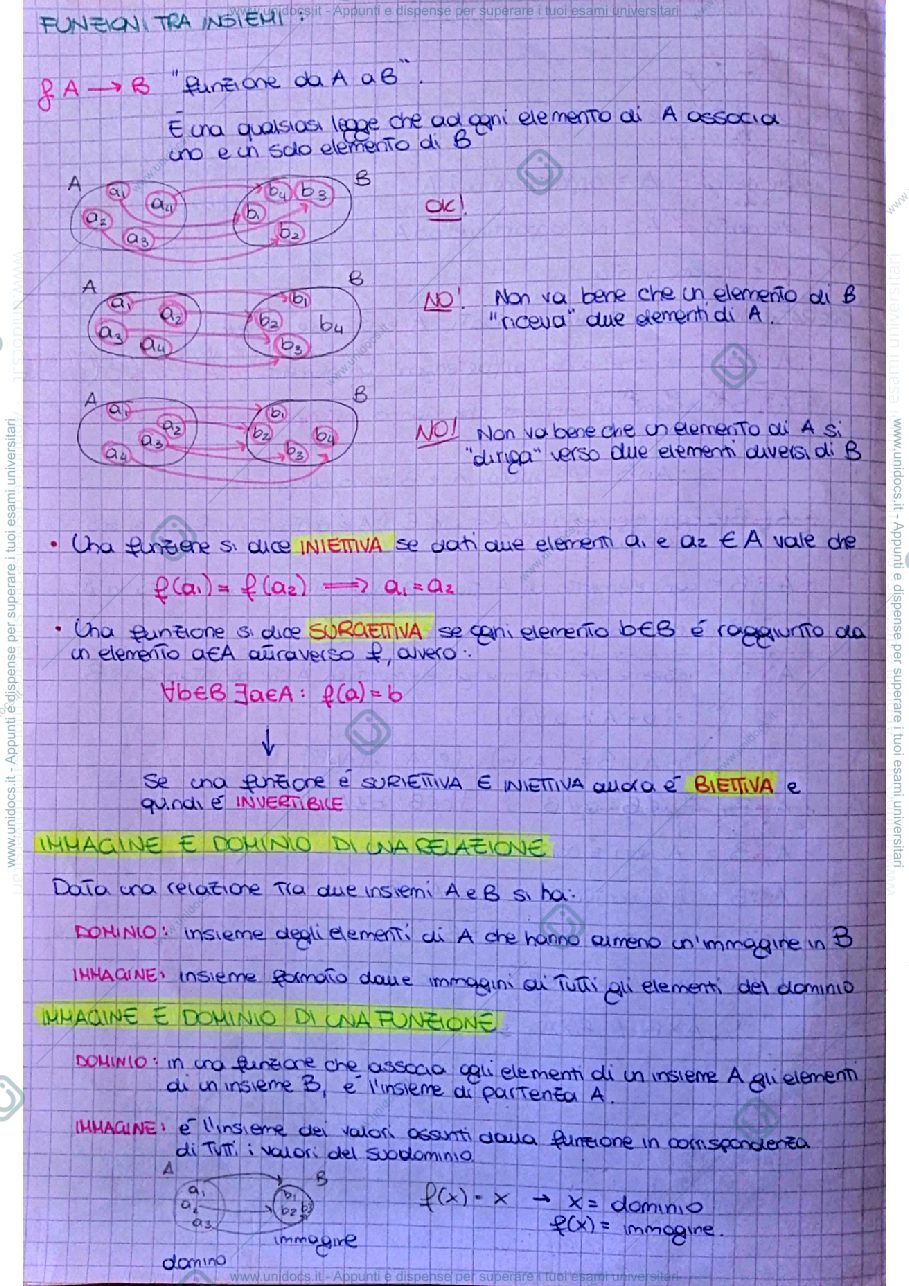 www.unidocs.it - Appunti e dispense per superare i tuoi esami universitari
FUNZIONI TRA INSIEMI :
f A → B "funzione da A a B".
È una qualsiasi legge che ad ogni elemento di A associa
uno e un solo elemento di B
A a1 a4 a2 a3 b4 b3 b1 b2 B
OK!
A a1 a2 a3 a4 b1 b2 b4 b3 B
NO! Non va bene che un elemento di B
"riceva" due elementi di A.
A a1 a2 a3 a4 b1 b2 b4 b3 B
NO! Non va bene che un elemento di A si
"diriga" verso due elementi diversi di B
• Una funzione si dice INIETTIVA se dati due elementi a1 e a2 ∈ A vale che
f(a1) = f(a2) ⟹ a1 = a2
• Una funzione si dice SURGETTIVA se ogni elemento b∈B é raggiunto da
un elemento a∈A attraverso f, ovvero:
∀b∈B ∃a∈A: f(a) = b
↓
se una funzione é SURIETTIVA E INIETTIVA allora é BIETTIVA e
quindi é INVERTIBILE
IMMAGINE E DOMINIO DI UNA RELAZIONE
Data una relazione tra due insiemi A e B si ha:
DOMINIO: insieme degli elementi di A che hanno almeno un'immagine in B
IMMAGINE: insieme formato dalle immagini di tutti gli elementi del dominio
IMMAGINE E DOMINIO DI UNA FUNZIONE
DOMINIO: in una funzione che associa agli elementi di un insieme A gli elementi
di un insieme B, é l'insieme di partenza A.
IMMAGINE: é l'insieme dei valori assunti dalla funzione in corrispondenza
di tutti i valori del suo dominio.
A a1 a2 a3 b1 b2 b3 B
f(x) = x → x = dominio
f(x) = immagine.
immagine
domino
www.unidocs.it - Appunti e dispense per superare i tuoi esami universitari
www.unidocs.it - Appunti e dispense per superare i tuoi esami universitari
www.unidocs.it - Appunti e dispense per superare i tuoi esami universitari